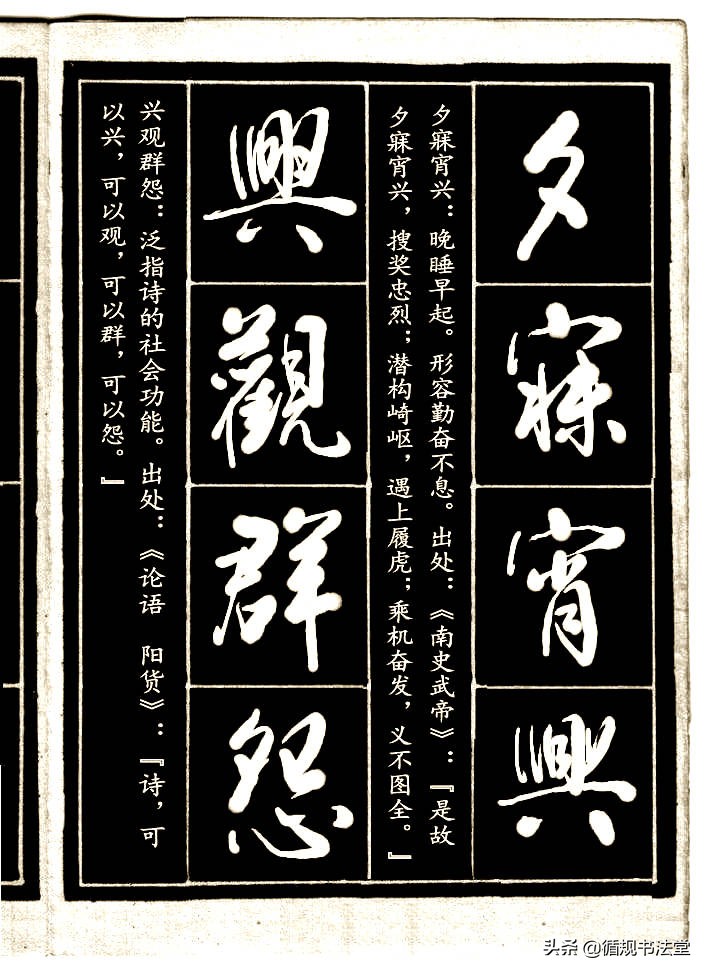 夕寐宵興
夕寐宵兴：晚睡早起。形容勤奋不息。出处：《南史武帝》：『是故
夕寐宵兴，搜奖忠烈；潜构崎岖，遇上履虎；乘机奋发，义不图全。』
興觀群怨
兴观群怨：泛指诗的社会功能。出处：《论语 阳货》：『诗，可
以兴，可以观，可以群，可以怨。』
头条 @循规书法堂